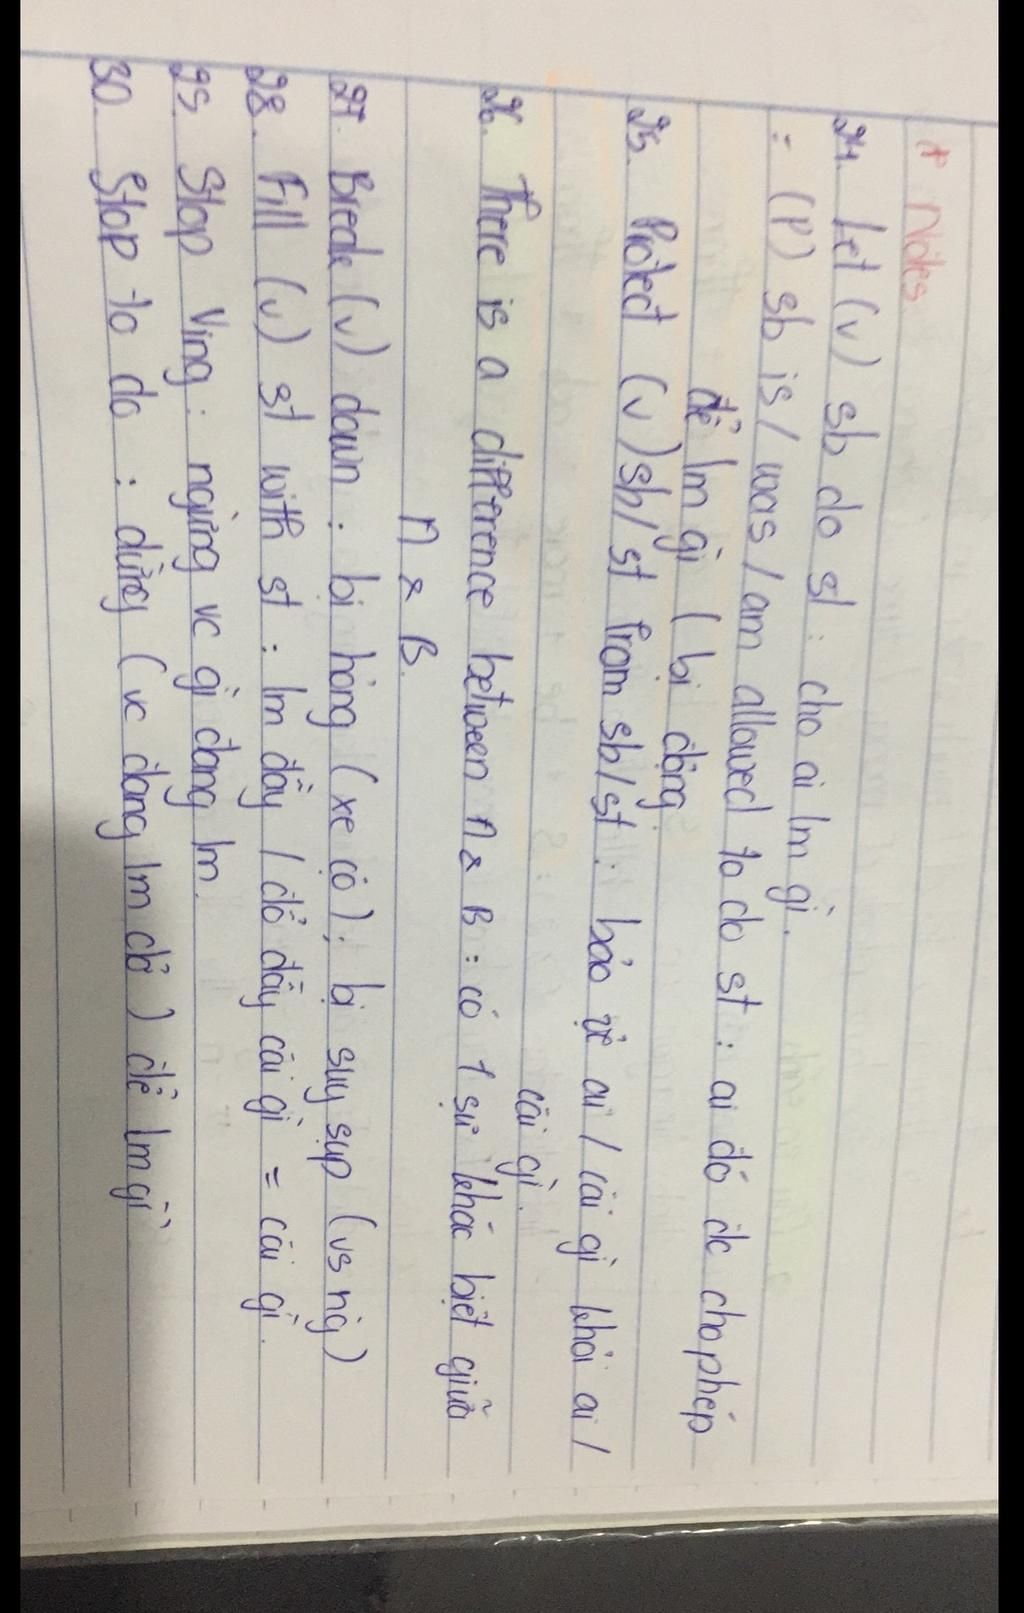 + Notes
24. Let (v) sb do st : cho ai lm gì.
= (P) sb is / was / am allowed to do st : ai đó đc cho phép
để lm gì ( bị động
25. Protect (v) sb/st from sb/st : bảo vệ ai / cái gì khỏi ai /
cái gì.
26. There is a difference between A & B : có 1 sự khác biệt giữa
A & B.
27. Break (v) down : bị hỏng (xe cộ); bị suy sụp (vs ng)
28. Fill (v) st with st : lm đầy / đổ đầy cái gì = cái gì.
29. Stop Ving : ngừng vc gì đang lm.
30. Stop to do : dừng (vc đang lm dở) để lm gì